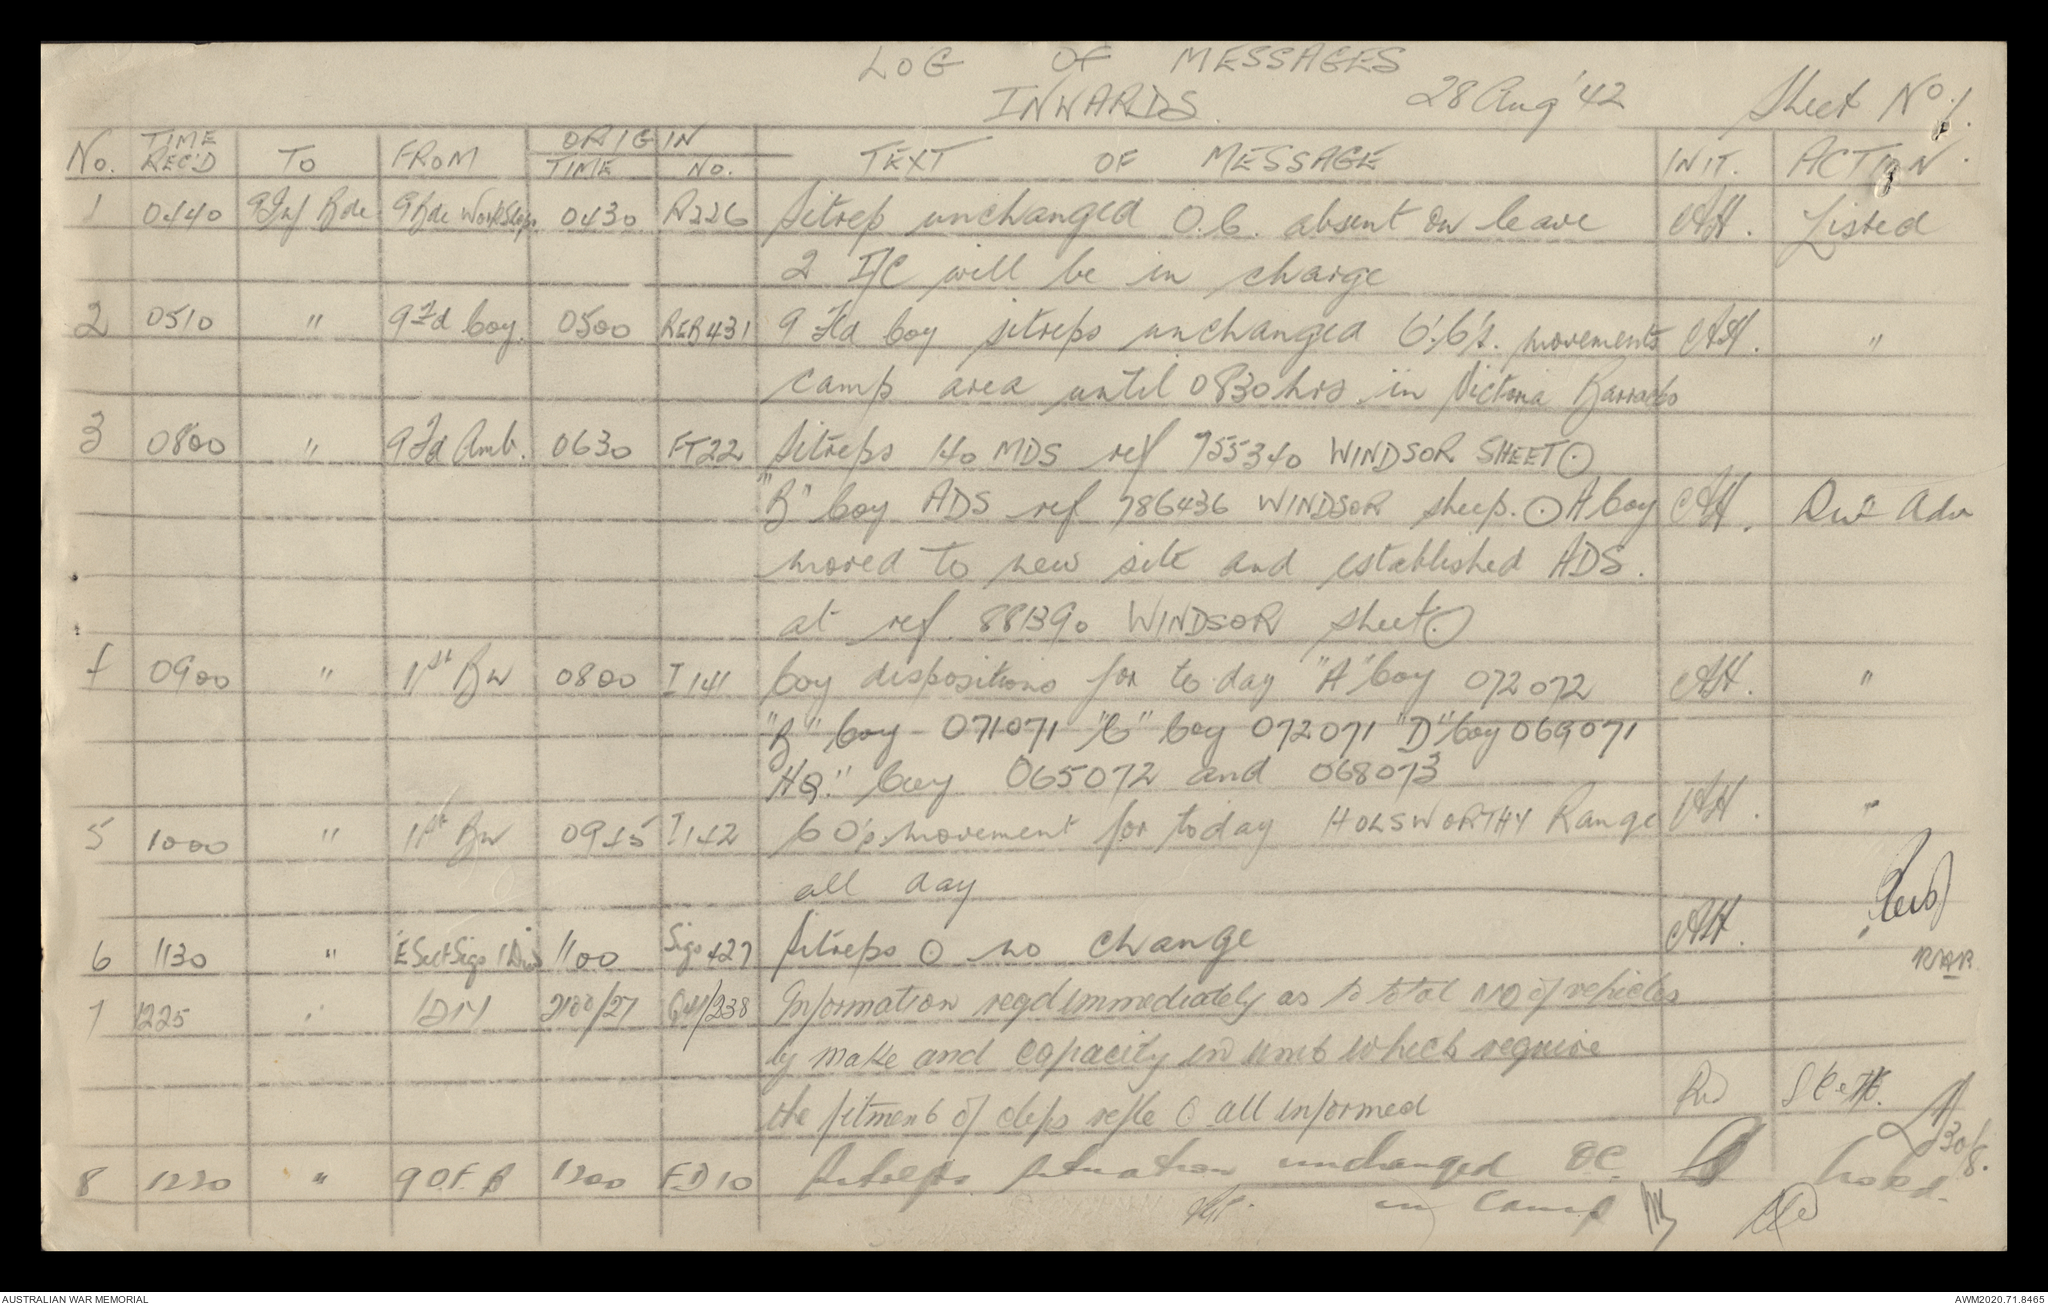 LOG OF MESSAGES
INWARDS. 28 Aug '42 Sheet No 1.
No. TIME REC'D TO FROM ORIGIN TIME NO. TEXT OF MESSAGE INIT. ACTION.
1 0440 9 Inf Bde 9 Bde Workshops 0430 R226 Sitrep unchanged O.C. absent on leave AH. Listed
2 I/C will be in charge
2 0510 " 9 Fd Coy. 0500 RER431 9 Fld Coy sitreps unchanged O.C's. movements AH. "
camp area until 0830 hrs. in Victoria Barracks
3 0800 " 9 Fd Amb. 0630 FT22 Sitreps HQ MDS ref 755340 WINDSOR SHEET ⊙
"B" Coy ADS ref 786436 WINDSOR sheep. ⊙ A Coy AH.
moved to new site and established ADS.
at ref. 881390 WINDSOR sheet ⊙
4 0900 " 1st Bn 0800 I 141 Coy dispositions for to day "A" Coy 072072 AH. "
"B" Coy - 071071 "C" Coy 072071 "D" Coy 069071
HQ." Coy 065072 and 068073
5 1000 " 1st Bn 0945 I142 CO's movement for today HOLSWORTHY Range AH. "
all day
6 1130 " E Sect Sigs 1 Div 1100 Sigs 427 Sitreps ⊙ no change AH.
7 1225 " 1DIV 2100/27 Q41/238 Information reqd immediately as to total NO of vehicles
by make and capacity in units which require
the fitment of clips rifle ⊙ all informed
30/8.
8 1220 " 9 O.F.P 1200 F.D10 Sitreps situation unchanged OC.
in camp
AUSTRALIAN WAR MEMORIAL AWM2020.71.8465